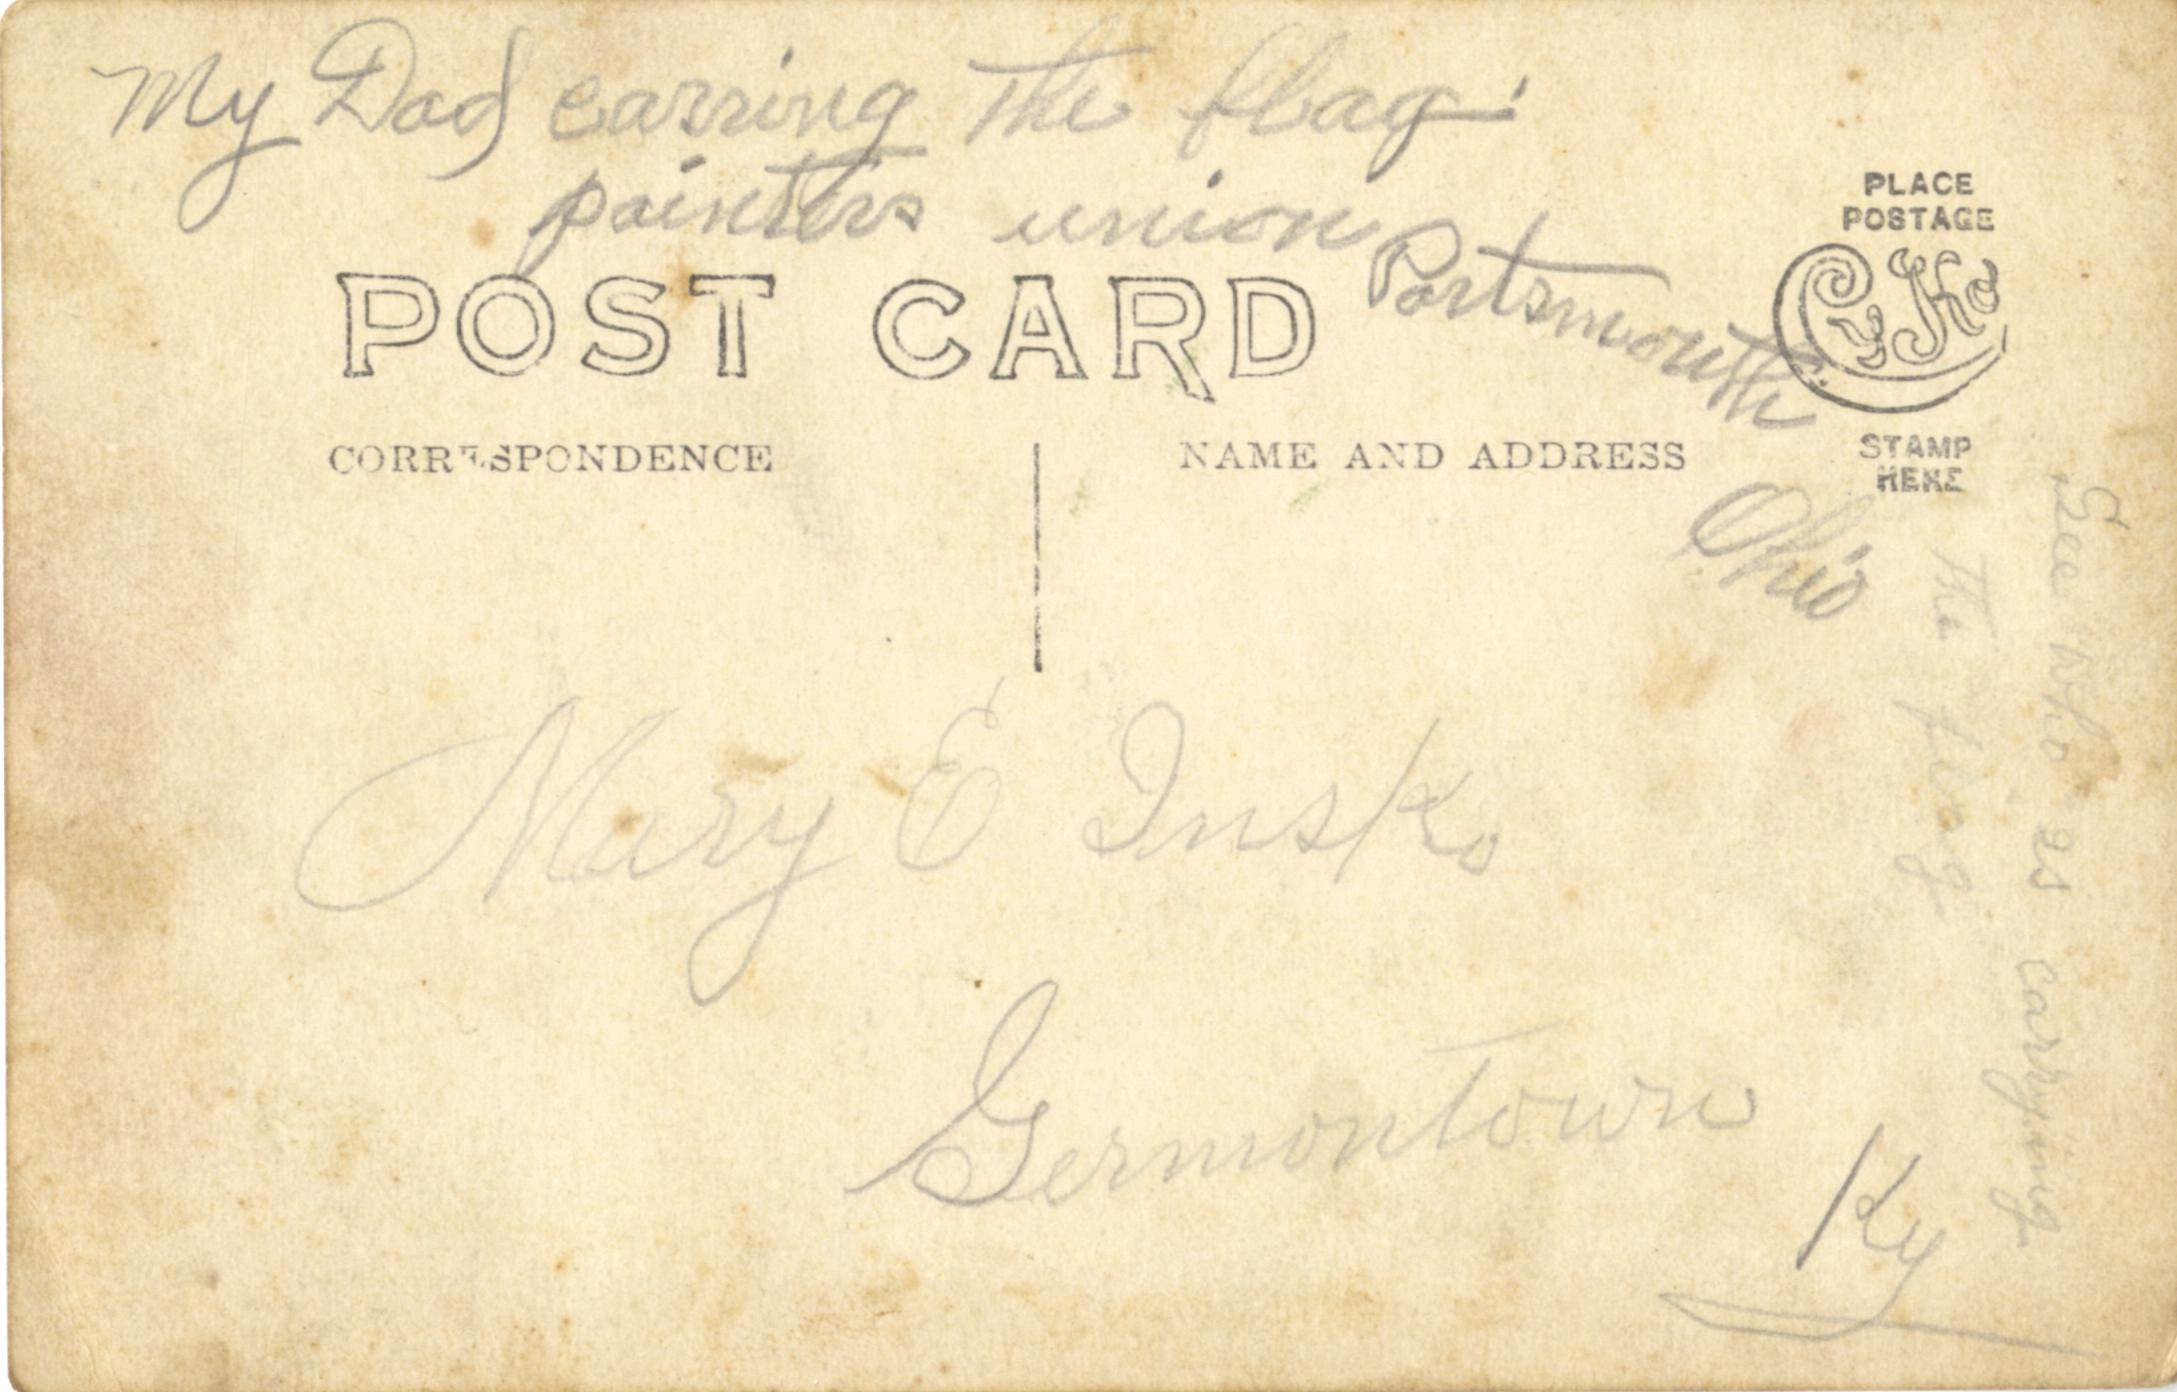 My Dad carring the flag.
painters union
Portsmouth
Ohio
PLACE
POSTAGE
CyKo
STAMP
HERE
POST CARD
CORRESPONDENCE
NAME AND ADDRESS
Mary E Insko
Germontown
Ky
See who is carrying
the flag